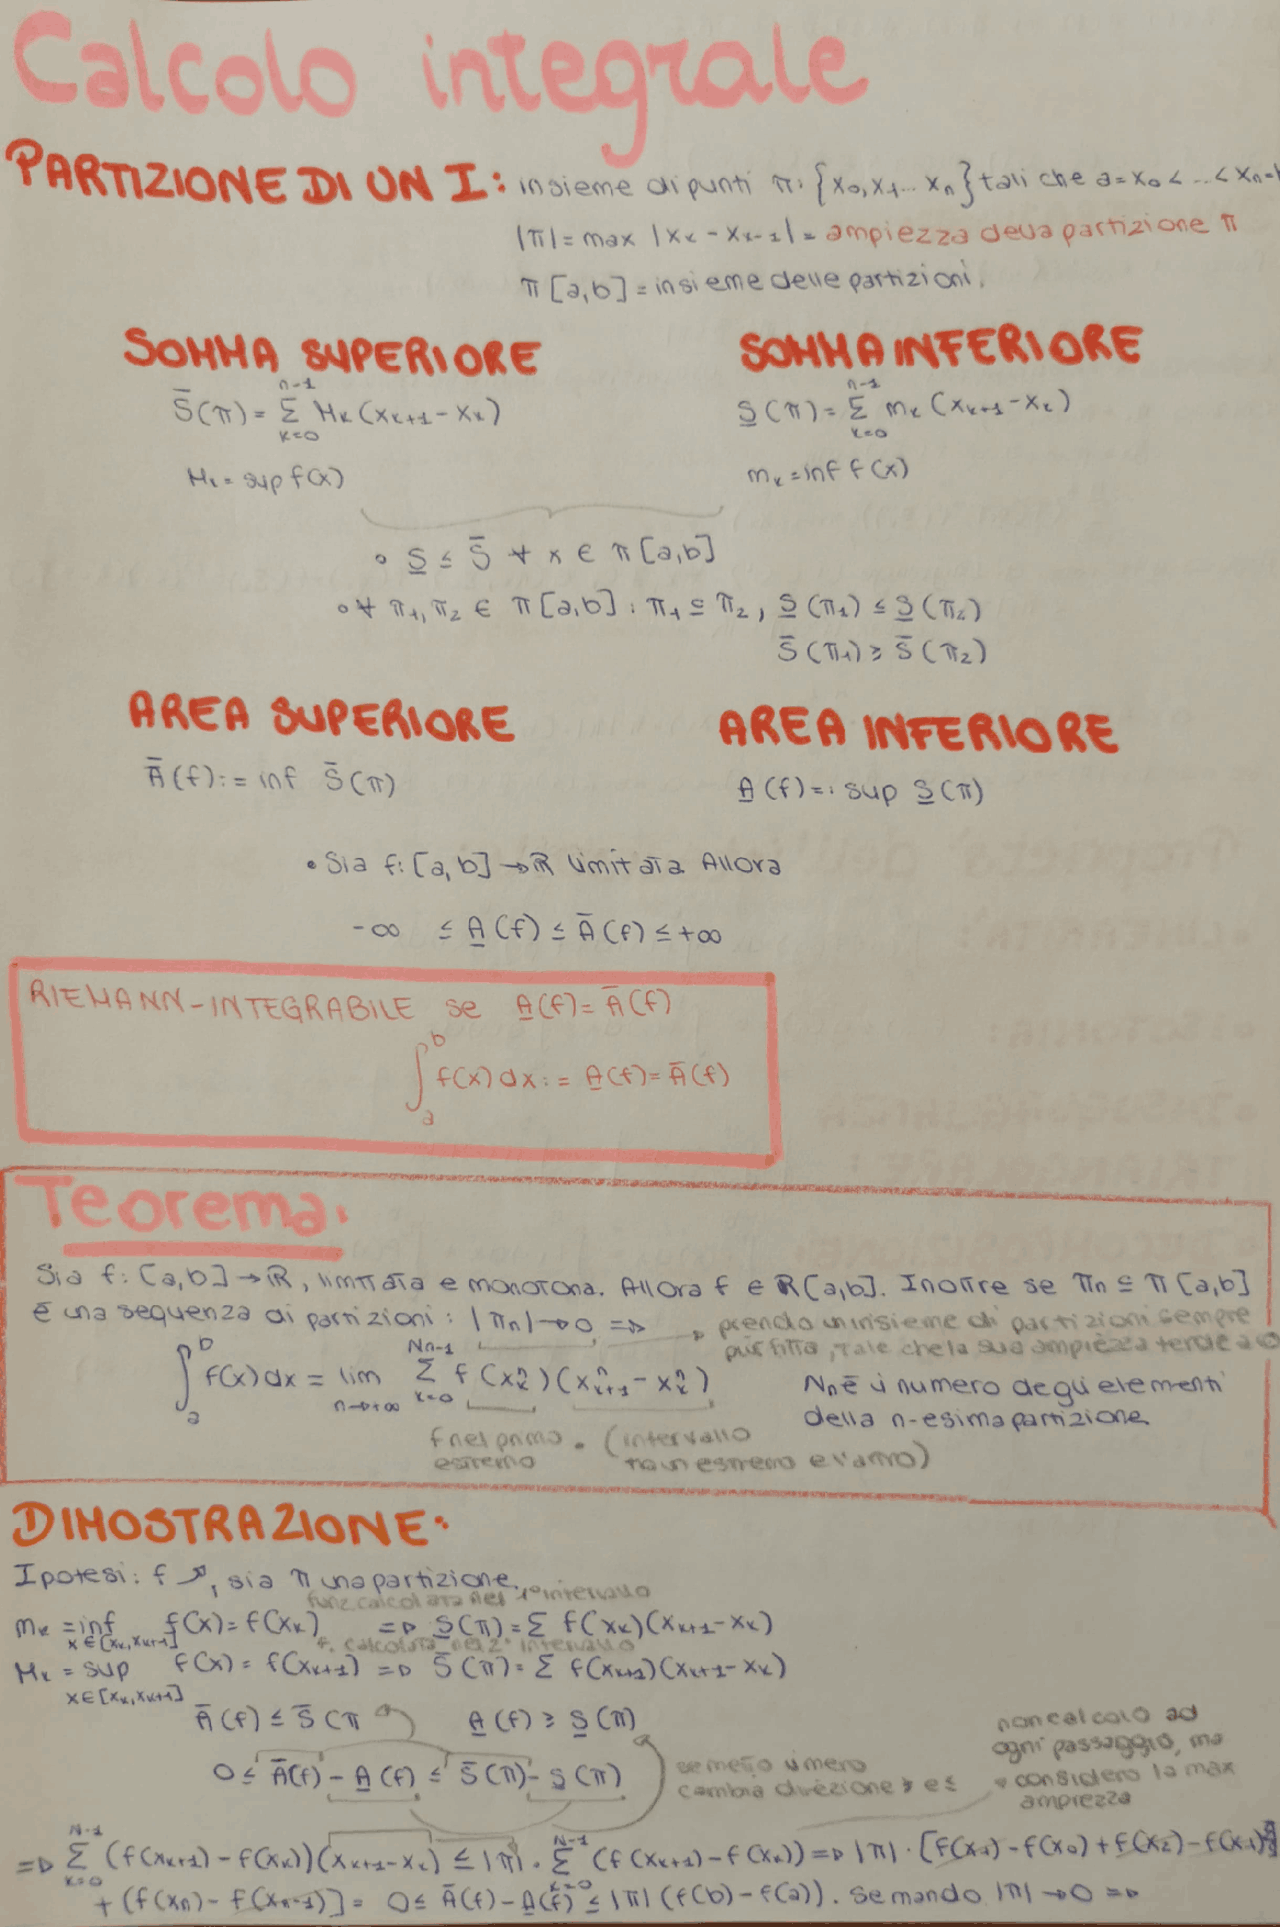 Calcolo integrale
PARTIZIONE DI UN I: insieme di punti π: {x₀, x₁... xₙ} tali che a=x₀ < ... < xₙ=b
|π| = max |xₖ - xₖ₋₁| = ampiezza della partizione π
π [a,b] = insieme delle partizioni.
SOMMA SUPERIORE SOMMA INFERIORE
S̄(π) = Σₖ₌₀ⁿ⁻¹ Mₖ (xₖ₊₁ - xₖ) S̲(π) = Σₖ₌₀ⁿ⁻¹ mₖ (xₖ₊₁ - xₖ)
Mₖ = sup f(x) mₖ = inf f(x)
∘ S̲ ≤ S̄ ∀ x ∈ π [a,b]
∘ ∀ π₁, π₂ ∈ π [a,b] : π₁ ⊆ π₂, S̲(π₁) ≤ S̲(π₂)
S̄(π₁) ≥ S̄(π₂)
AREA SUPERIORE AREA INFERIORE
Ā(f) := inf S̄(π) A̲(f) =: sup S̲(π)
• Sia f: [a,b] → ℝ limitata Allora
-∞ ≤ A̲(f) ≤ Ā(f) ≤ +∞
RIEMANN-INTEGRABILE se A̲(f) = Ā(f)
∫ₐᵇ f(x) dx := A̲(f) = Ā(f)
Teorema.
Sia f: [a,b] → ℝ, limitata e monotona. Allora f ∈ R[a,b]. Inoltre se πₙ ⊆ π [a,b]
è una sequenza di partizioni: |πₙ| → 0 => → prendo un insieme di partizioni sempre
più fitta, tale che la sua ampiezza tende a 0
∫ₐᵇ f(x) dx = lim n→+∞ Σₖ₌₀ᴺⁿ⁻¹ f(xₖⁿ)(xₖ₊₁ⁿ - xₖⁿ) Nₙ è il numero degli elementi
della n-esima partizione
f nel primo estremo • (intervallo
tra un estremo e l'altro)
DIMOSTRAZIONE:
Ipotesi: f ↗, sia π una partizione.
funz calcolata nel 1° intervallo
mₖ = inf x∈[xₖ, xₖ₊₁] f(x) = f(xₖ) => S̲(π) = Σ f(xₖ)(xₖ₊₁ - xₖ)
f. calcolata nel 2° intervallo
Mₖ = sup x∈[xₖ, xₖ₊₁] f(x) = f(xₖ₊₁) => S̄(π) = Σ f(xₖ₊₁)(xₖ₊₁ - xₖ)
Ā(f) ≤ S̄(π A̲(f) ≥ S̲(π)
0 ≤ Ā(f) - A̲(f) ≤ S̄(π) - S̲(π)
se metto il meno
cambia direzione ≥ e ≤
non calcolo ad
ogni passaggio, ma
considero la max
ampiezza
=> Σₖ₌₀ᴺ⁻¹ (f(xₖ₊₁) - f(xₖ))(xₖ₊₁ - xₖ) ≤ |π| · Σₖ₌₀ᴺ⁻¹ (f(xₖ₊₁) - f(xₖ)) => |π| · [f(x₁) - f(x₀) + f(x₂) - f(x₁)
+ (f(xₙ) - f(xₙ₋₁)] = 0 ≤ Ā(f) - A̲(f) ≤ |π| (f(b) - f(a)). Se mando |π| → 0 =>